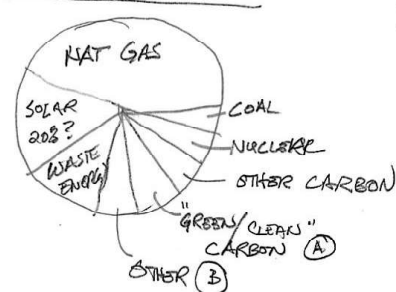 NAT GAS
SOLAR
20%?
WASTE
ENERGY
COAL
NUCLEAR
OTHER CARBON
"GREEN/CLEAN"
CARBON Ⓐ
OTHER Ⓑ